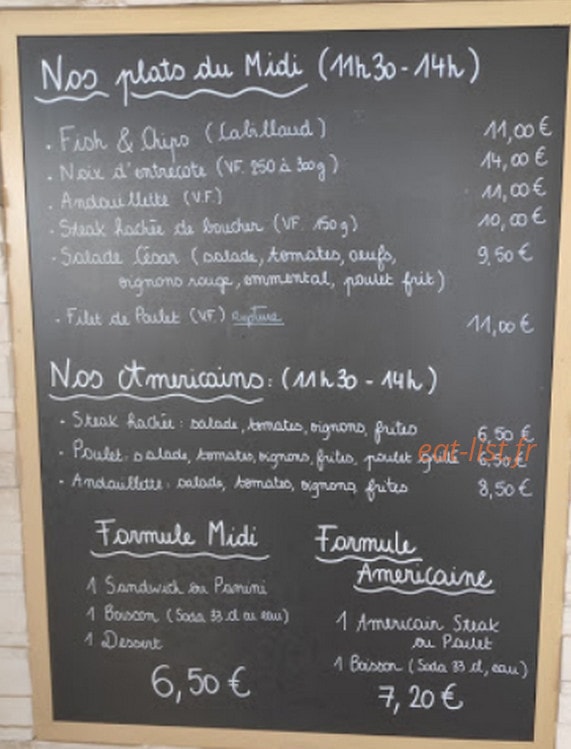 Nos plats du Midi (11h30-14h)
. Fish & Chips (Cabillaud) 11,00€
. Noix d'entrecote (VF. 250 à 300g) 14,00€
. Andouillette (V.F.) 11,00€
. Steak hachée de boucher (VF. 150g) 10,00€
. Salade César (salade, tomates, oeufs, 9,50€
oignons rouge, emmental, poulet frit)
. Filet de Poulet (VF.) Rupture 11,00€
Nos Americains: (11h30-14h)
. Steak hachée: salade, tomates, oignons, frites 6,50€
. Poulet: salade, tomates, oignons, frites, poulet grillé 6,50€
eat-list.fr
. Andouillette: salade, tomates, oignons, frites 8,50€
Formule Midi
1 Sandwich ou Panini
1 Boisson (Soda 33 cl ou eau)
1 Dessert
6,50€
Formule
Americaine
1 Americain Steak
ou Poulet
1 Boisson (Soda 33 cl, eau)
7,20€